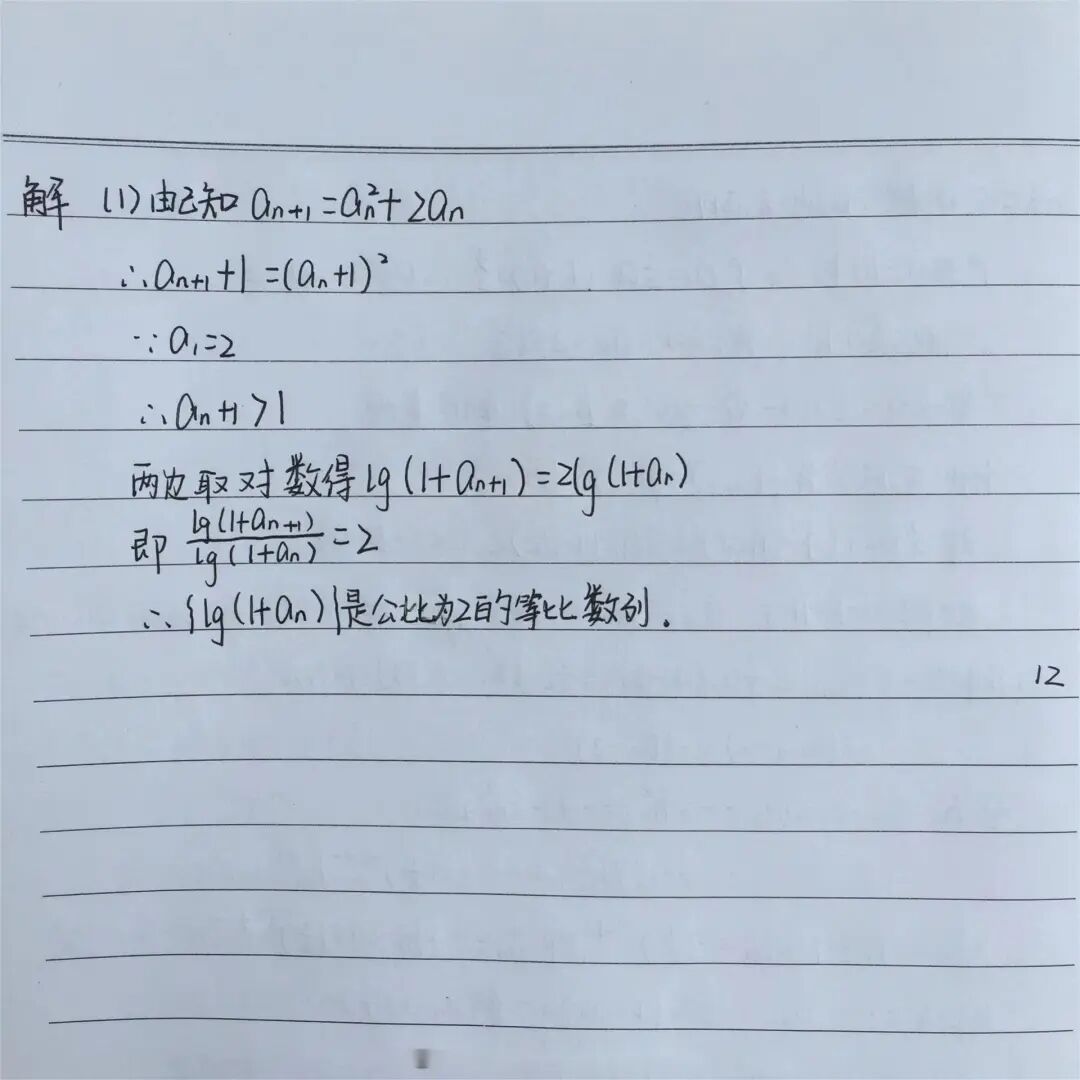 解 (1)由已知 aₙ₊₁=aₙ²+2aₙ
∴aₙ₊₁+1=(aₙ+1)²
∵a₁=2
∴aₙ+1>1
两边取对数得lg(1+aₙ₊₁)=2lg(1+aₙ)
即 lg(1+aₙ₊₁)/lg(1+aₙ)=2
∴{lg(1+aₙ)}是公比为2的等比数列.
12